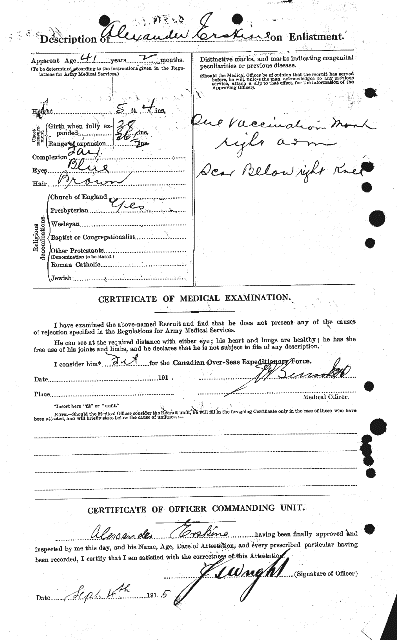 Description of Alexander Erskine on Enlistment.
Apparent Age 41 years 2 months.
(To be determined according to the instructions given in the Regulations for Army Medical Services.)
Distinctive marks, and marks indicating congenital peculiarities or previous disease.
(Should the Medical Officer be of opinion that the recruit has served before, he will, unless the man acknowledges to any previous service, attach a slip to that effect, for the information of the Approving Officer.)
Height 5 ft. 4 ins.
Chest measurement
Girth when fully expanded 38 ins.
Range of expansion ins.
Complexion Fair
Eyes Blue
Hair Brown
One Vaccination Mark
right arm
Scar Bellow right Knee
Religious denominations
Church of England
Presbyterian Yes
Wesleyan
Baptist or Congregationalist
Other Protestants
(Denomination to be stated.)
Roman Catholic
Jewish
CERTIFICATE OF MEDICAL EXAMINATION.
I have examined the above-named Recruit and find that he does not present any of the causes
of rejection specified in the Regulations for Army Medical Services.
He can see at the required distance with either eye; his heart and lungs are healthy; he has the
free use of his joints and limbs, and he declares that he is not subject to fits of any description.
I consider him* Fit for the Canadian Over-Seas Expeditionary Force.
Date 191 .
Place
Medical Officer.
*Insert here "fit" or "unfit."
NOTE.—Should the Medical Officer consider the Recruit unfit, he will fill in the foregoing Certificate only in the case of those who have
been attested, and will briefly state below the cause of unfitness:—
CERTIFICATE OF OFFICER COMMANDING UNIT.
Alexander Erskine having been finally approved and
inspected by me this day, and his Name, Age, Date of Attestation, and every prescribed particular having
been recorded, I certify that I am satisfied with the correctness of this Attestation.
(Signature of Officer)
Date Sept 1915